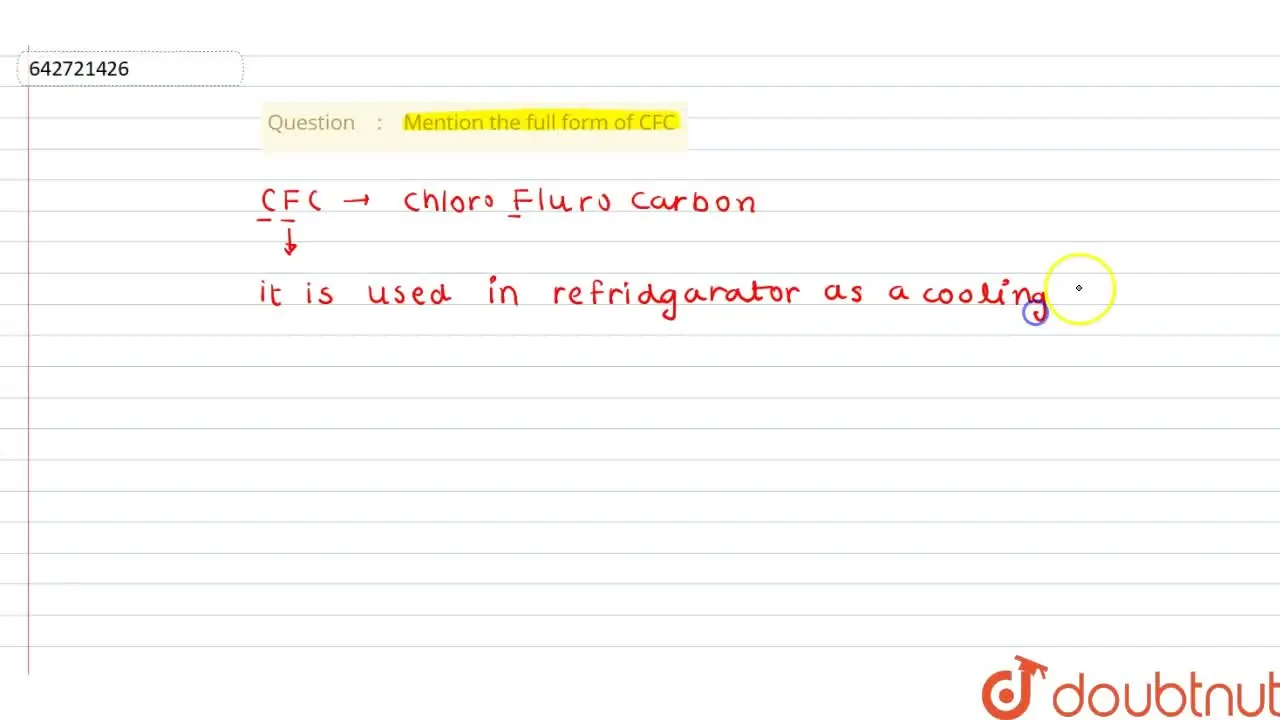 642721426
Question : Mention the full form of CFC
CFC → chloro Fluro carbon
it is used in refridgarator as a cooling
doubtnut